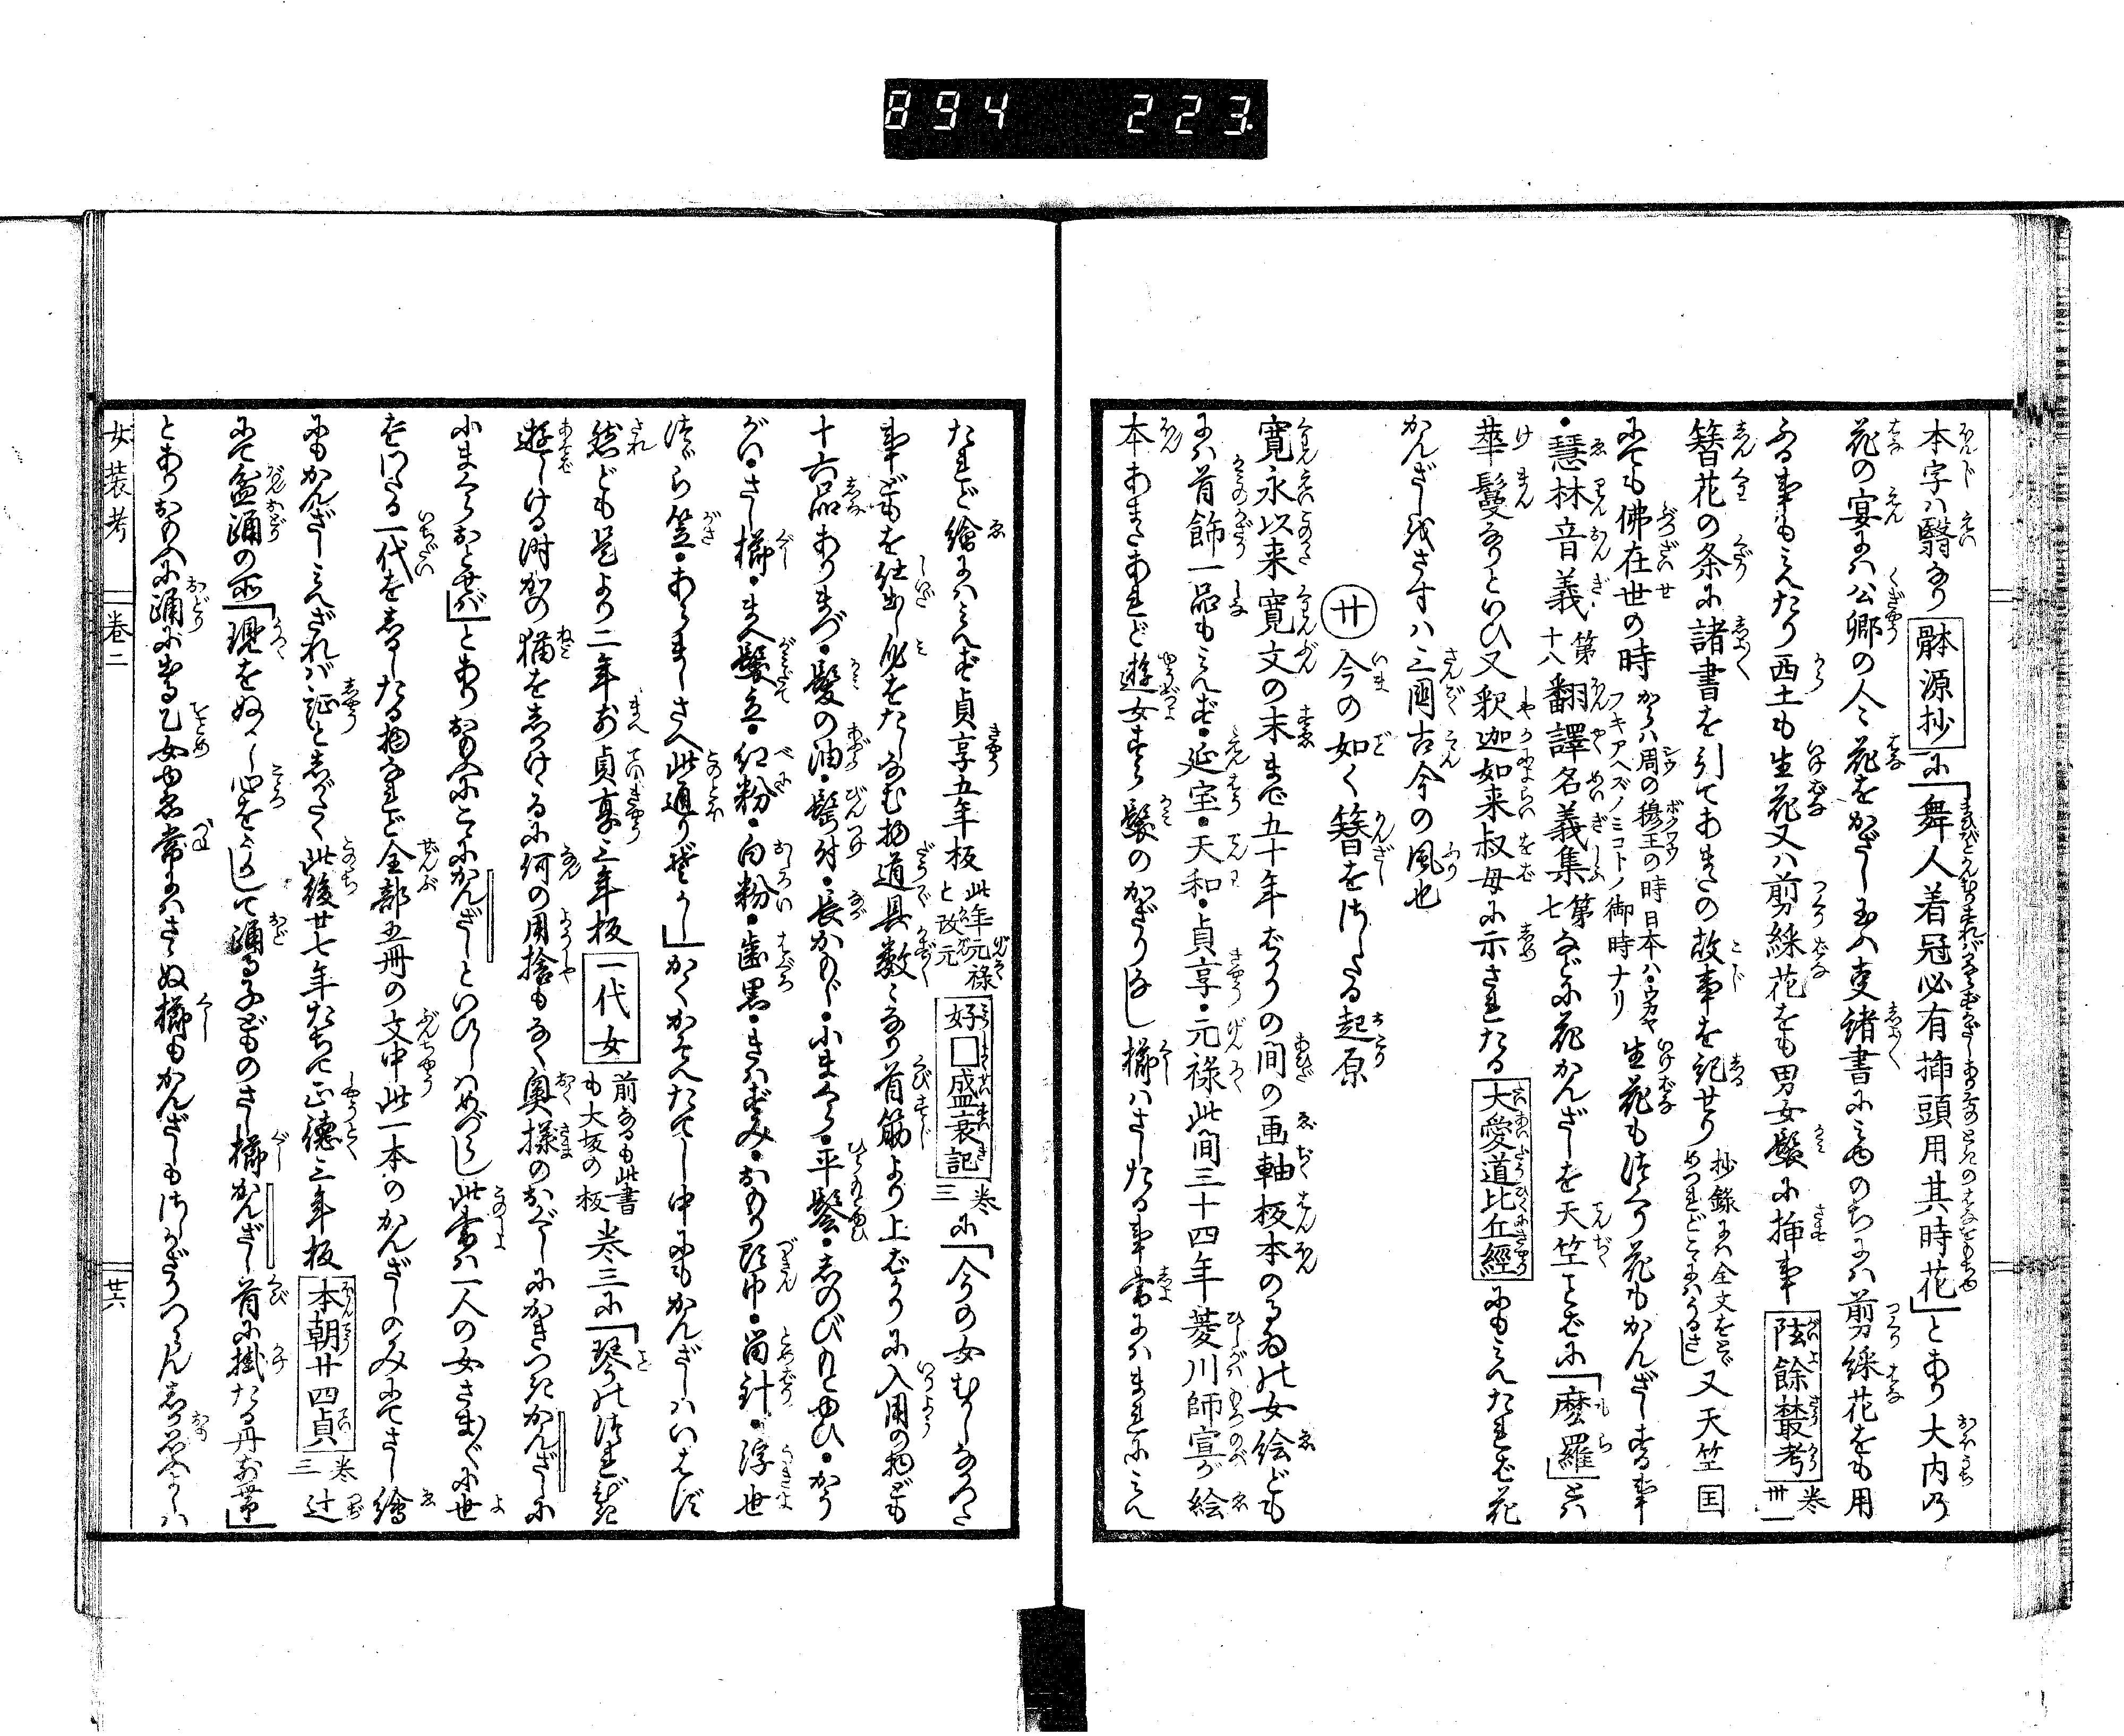 894 223.
本字ハ翳なり 體源抄 に「舞人着冠必有挿頭用其時花」とあり大内乃
花の宴にハ公卿の人々花をかざし玉ふ事諸書に見ものちにハ剪綵花をも用
ふる事もみえたり西土も生花又ハ剪綵花をも男女髪に挿事 陔餘叢考 巻卅一
簪花の条に諸書を引てあまたの故事を記せり 抄録にハ全文をこそめつれどこゝにハうるさし 又天竺国
にても佛在世の時 からハ周の穆王の時日本ハウガヤフキアヘズノミコトノ御時ナリ 生花も作り花もかんざしする事
・慧林音義 第十八 翻譯名義集 第七 などに花かんざしを天竺ことばに「麼羅」とハ
華鬘なりといひ又釈迦如来叔母に示されたる 大愛道比丘經 にもみえたれバ花
かんざし我さすハ三國古今の風也
廿 今の如く簪をはしたる起原
寛永以来寛文の末まで五十年ばかりの間の画軸板本のるゐ此女絵ども
にハ首飾一品もみえず・延宝・天和・貞享・元禄此間三十四年菱川師宣が絵
本あまたあれど遊女すら髪のかざりなし櫛ハさしたる事常にハまれにみえ
たれど繪にハみえず貞享五年板 此年元禄と改元 好□盛衰記 巻三 に「今の女むかしなかつた
事どもを仕出し身をたしなむ物道具数々なり首筋より上ばかりに入用の物ども
十六品ありまづ・髪の油・鬢付・長かもじ・小まくら・平髻・しのびもとゆひ・かう
がい・さし櫛・まへ髪立・紅粉・白粉・歯黒・きハずみ・おもり頭巾・留針・浮世
つゞら笠・あらましさへ此通りぞかし」かくかぞへたてし中にもかんざしハいはず
然ども是より二年前貞享三年板 一代女 前なるも此書も大坂の板 巻三に「琴此つまびき
遊しける時かの猫をしかけるに何の用捨もなく奥様のおぐしにかきつきかんざしに
小まくらおとせバ」とありおもふにこゝにかんざしといひしハめづらし此書ハ一人の女さま〴〵に世
をわたる一代をしるしたる物なれど全部五冊の文中此一本のかんざしのみにてさし繪
にもかんざしみえざれバ証としがたく此後廿七年たちて正徳三年板 本朝廿四貞 巻三 辻
にて盆踊の所「現をぬかし心をこかして踊る子どものさし櫛かんざし首に掛たる丹お帯」
とありおもふに踊に出る乙女ゆゑ常にハさゝぬ櫛もかんざしもはでかざりつらんしかおもふよしハ
女装考 巻二 廿六